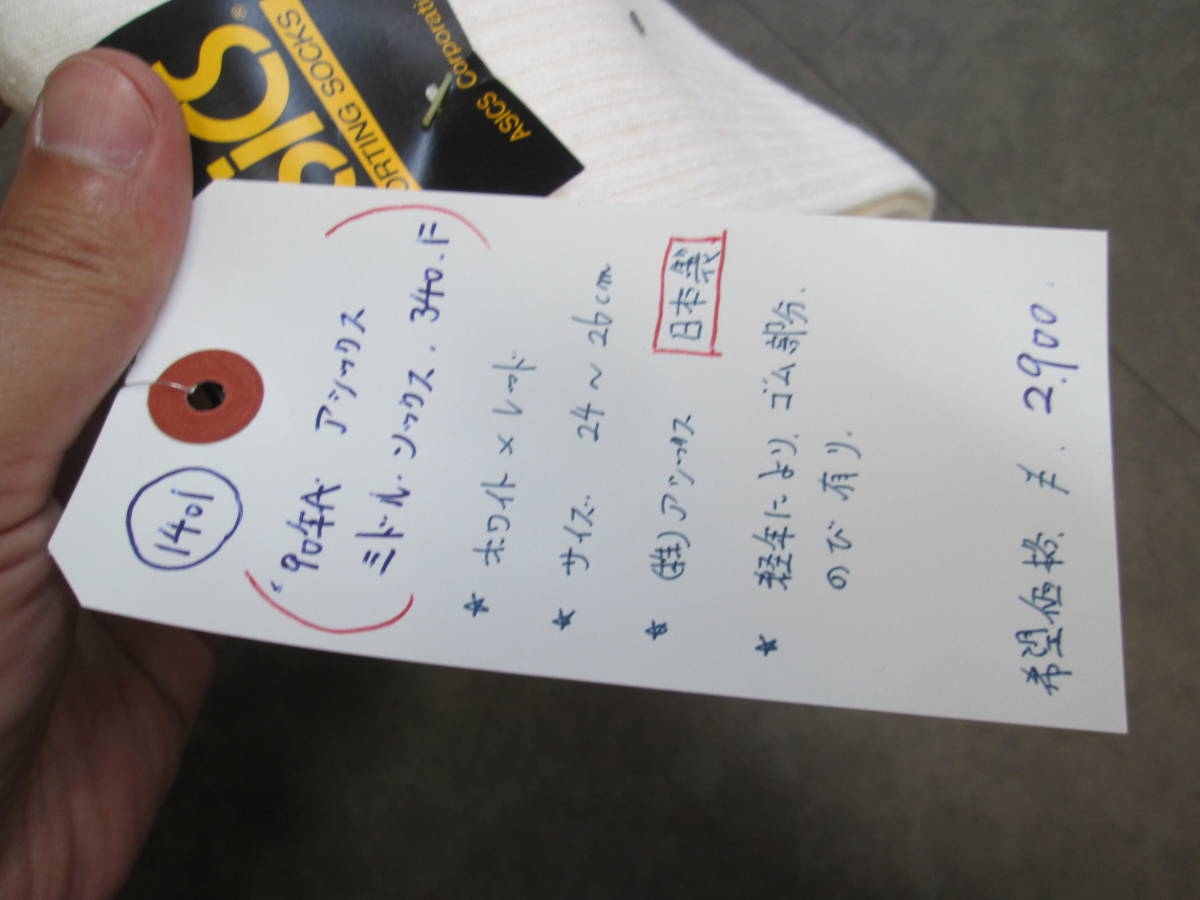 asics
®
SPORTING SOCKS
ASICS Corporati
1401
'90年A. アシックス
ミドル.ソックス. 340.ド
☆ ホワイト × レッド
☆ サイズ. 24〜26cm
☆ (株)アシックス 日本製
☆ 経年により. ゴム部分.
のび有り.
希望価格. ¥. 2.900.